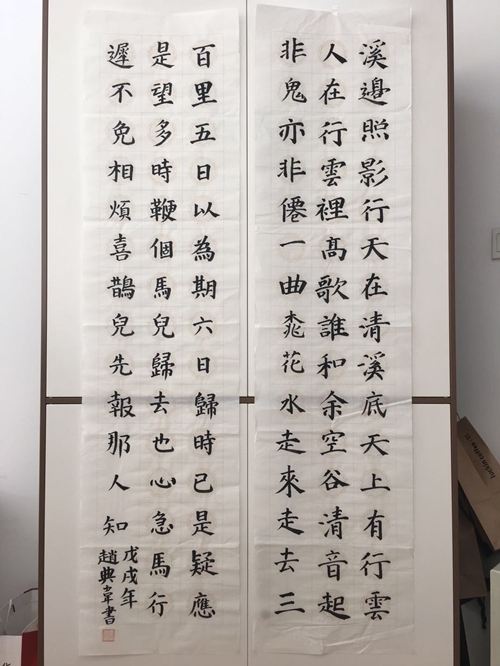 溪邊照影行天在清溪底天上有行雲
人在行雲裡髙歌誰和余空谷清音起
非鬼亦非僊一曲桃花水走來走去三
百里五日以為期六日歸時已是疑應
是望多時鞭個馬兒歸去也心急馬行
遲不免相煩喜鵲兒先報那人知
戊戌年
趙典韋書